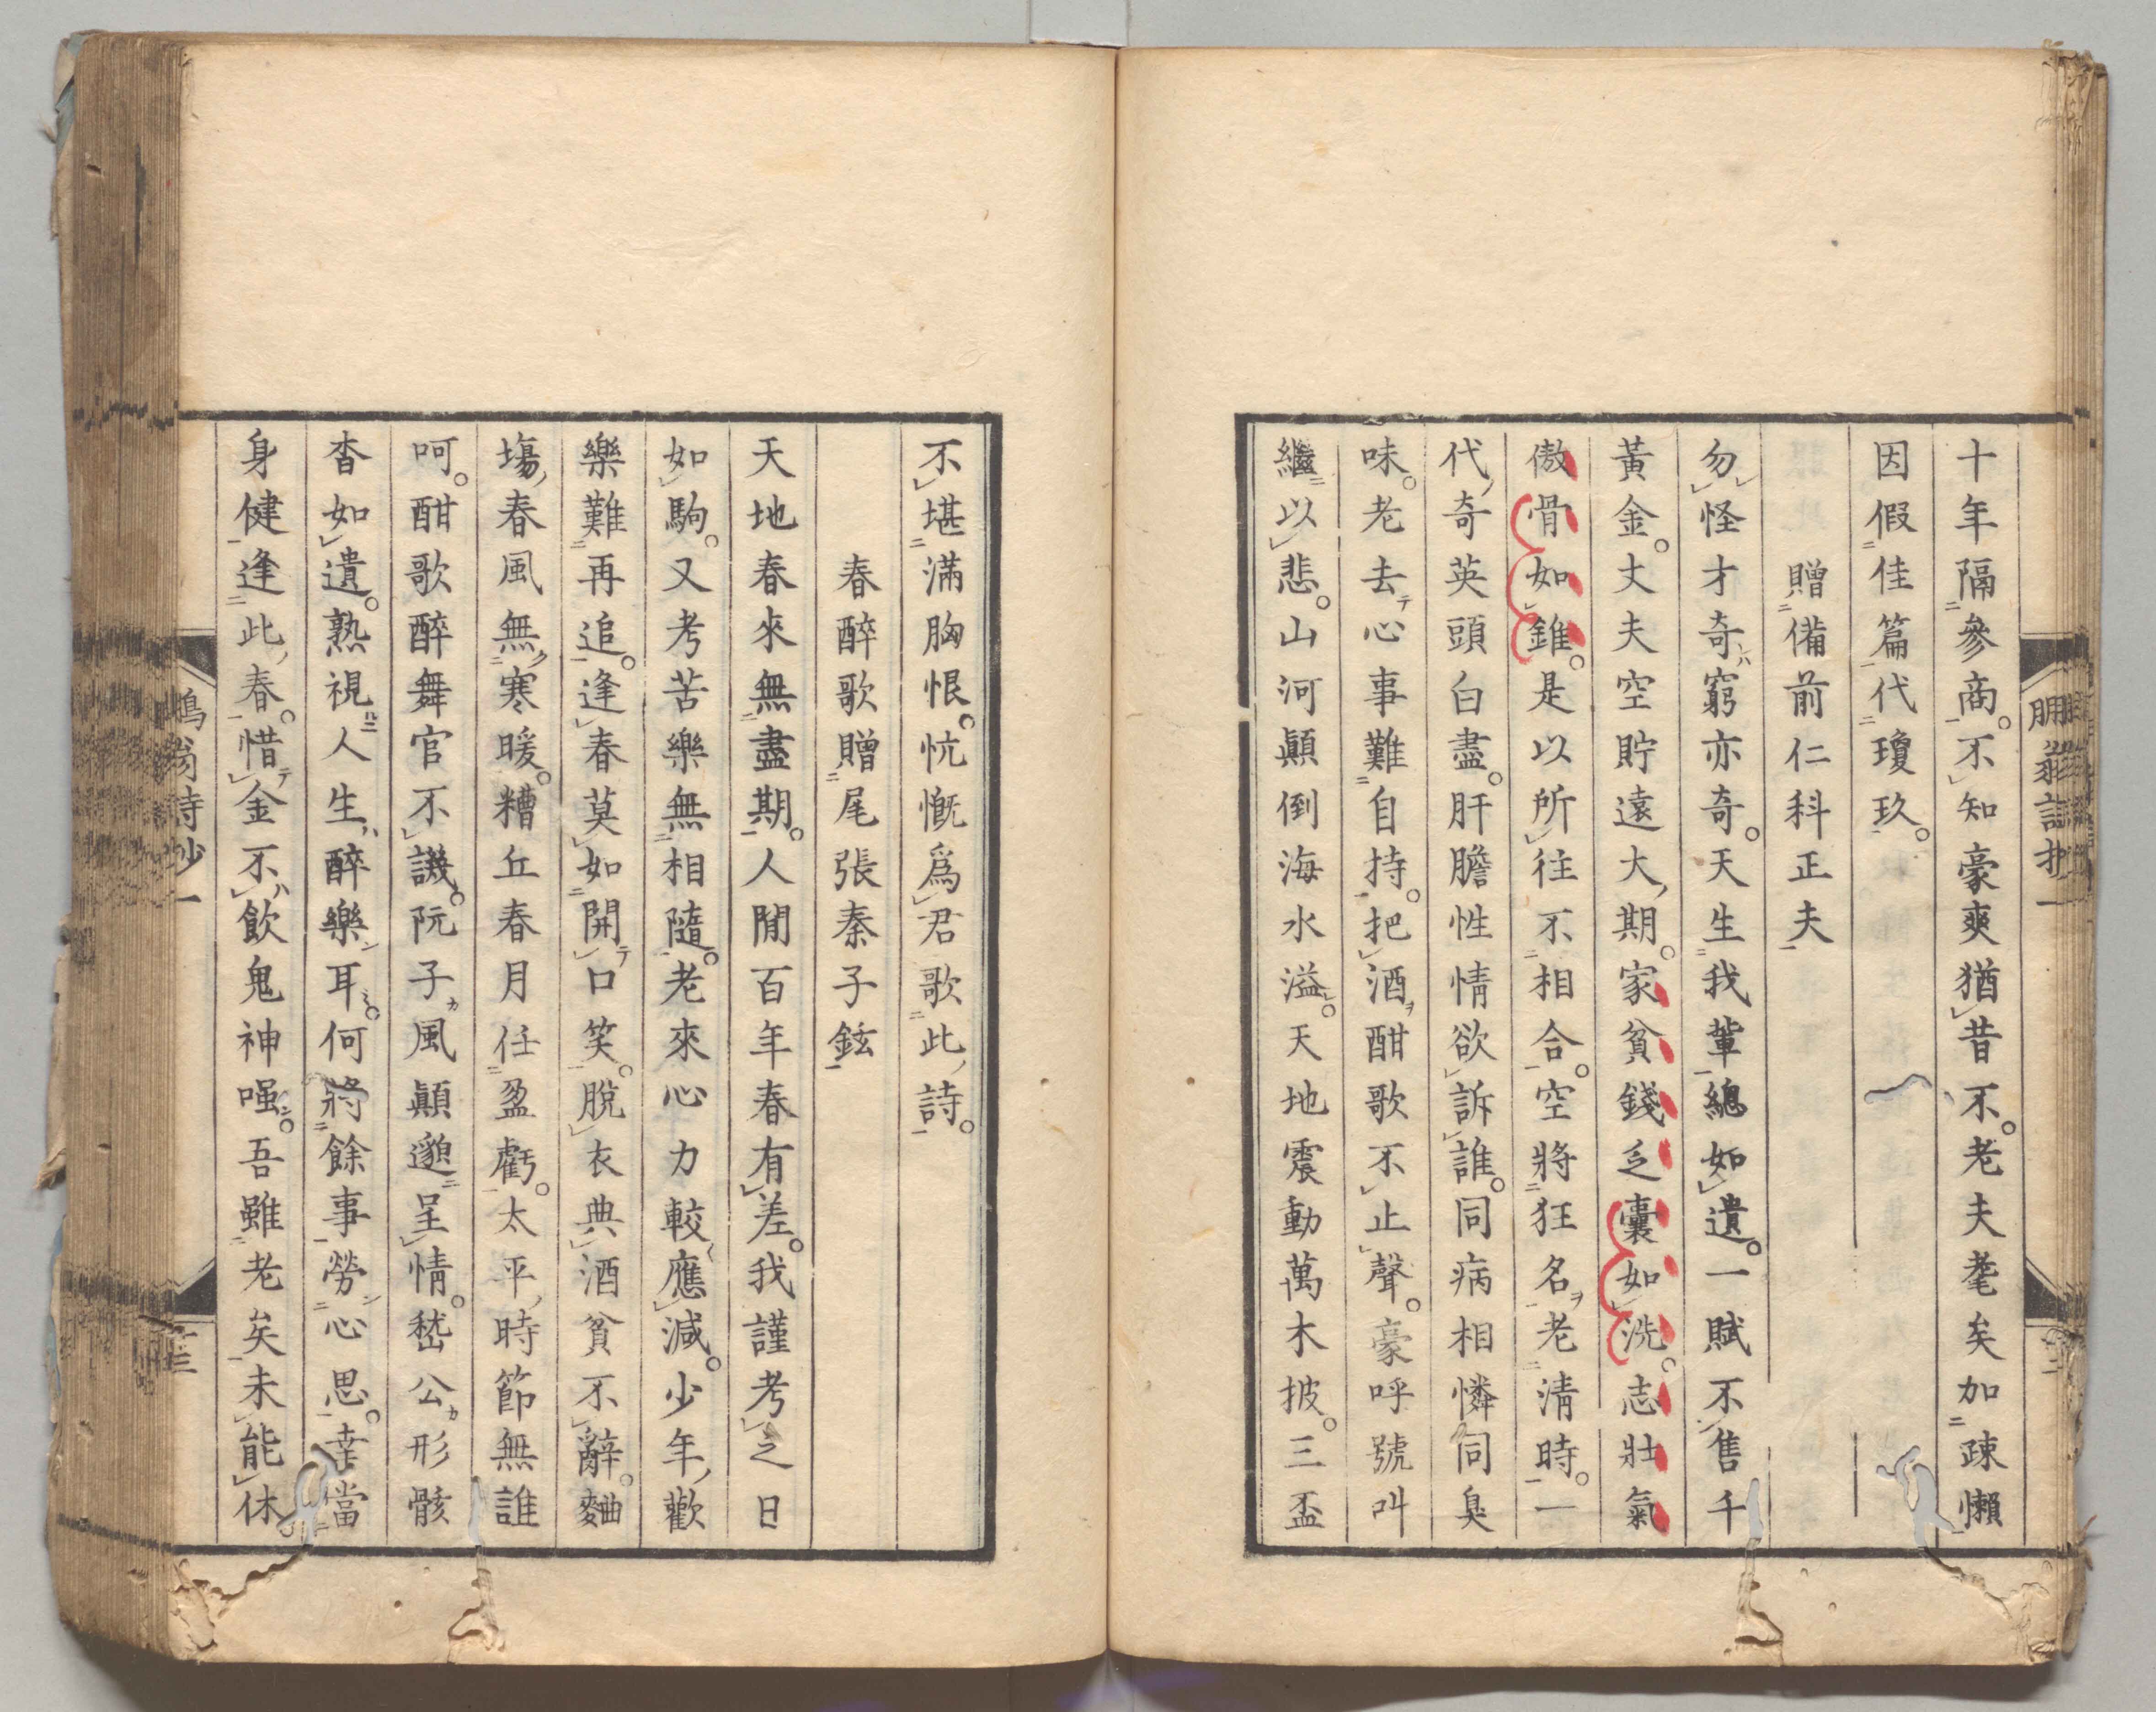 十年隔參商。不知豪爽猶昔不。老夫耄矣加疎懶
因假佳篇代瓊玖。
贈備前仁科正夫
勿怪才奇窮亦奇。天生我輩總如遺。一賦不售千
黃金。丈夫空貯遠大期。家貧錢乏囊如洗。志壯氣
傲骨如錐。是以所往不相合。空將狂名老清時。一
代奇英頭白盡。肝膽性情欲訴誰。同病相憐同臭
味。老去心事難自持。把酒酣歌不止聲。豪呼號叫
繼以悲。山河顚倒海水溢。天地震動萬木披。三盃
不堪滿胸恨。忼慨爲君歌此詩。
春醉歌贈尾張秦子鉉
天地春來無盡期。人間百年春有差。我謹考之日
如駒。又考苦樂無相隨。老來心力較應減。少年歡
樂難再追。逢春莫如開口笑。脫衣典酒貧不辭。麯
塲春風無寒暖。糟丘春月任盈虧。太平時節無誰
呵。酣歌醉舞官不譏。阮子風顚邈呈情。嵇公形骸
杳如遺。熟視人生醉樂耳。何將餘事勞心思。幸當
身健逢此春。惜金不飲鬼神嗤。吾雖老矣未能休。
翁詩抄一
二
翁詩抄一
三